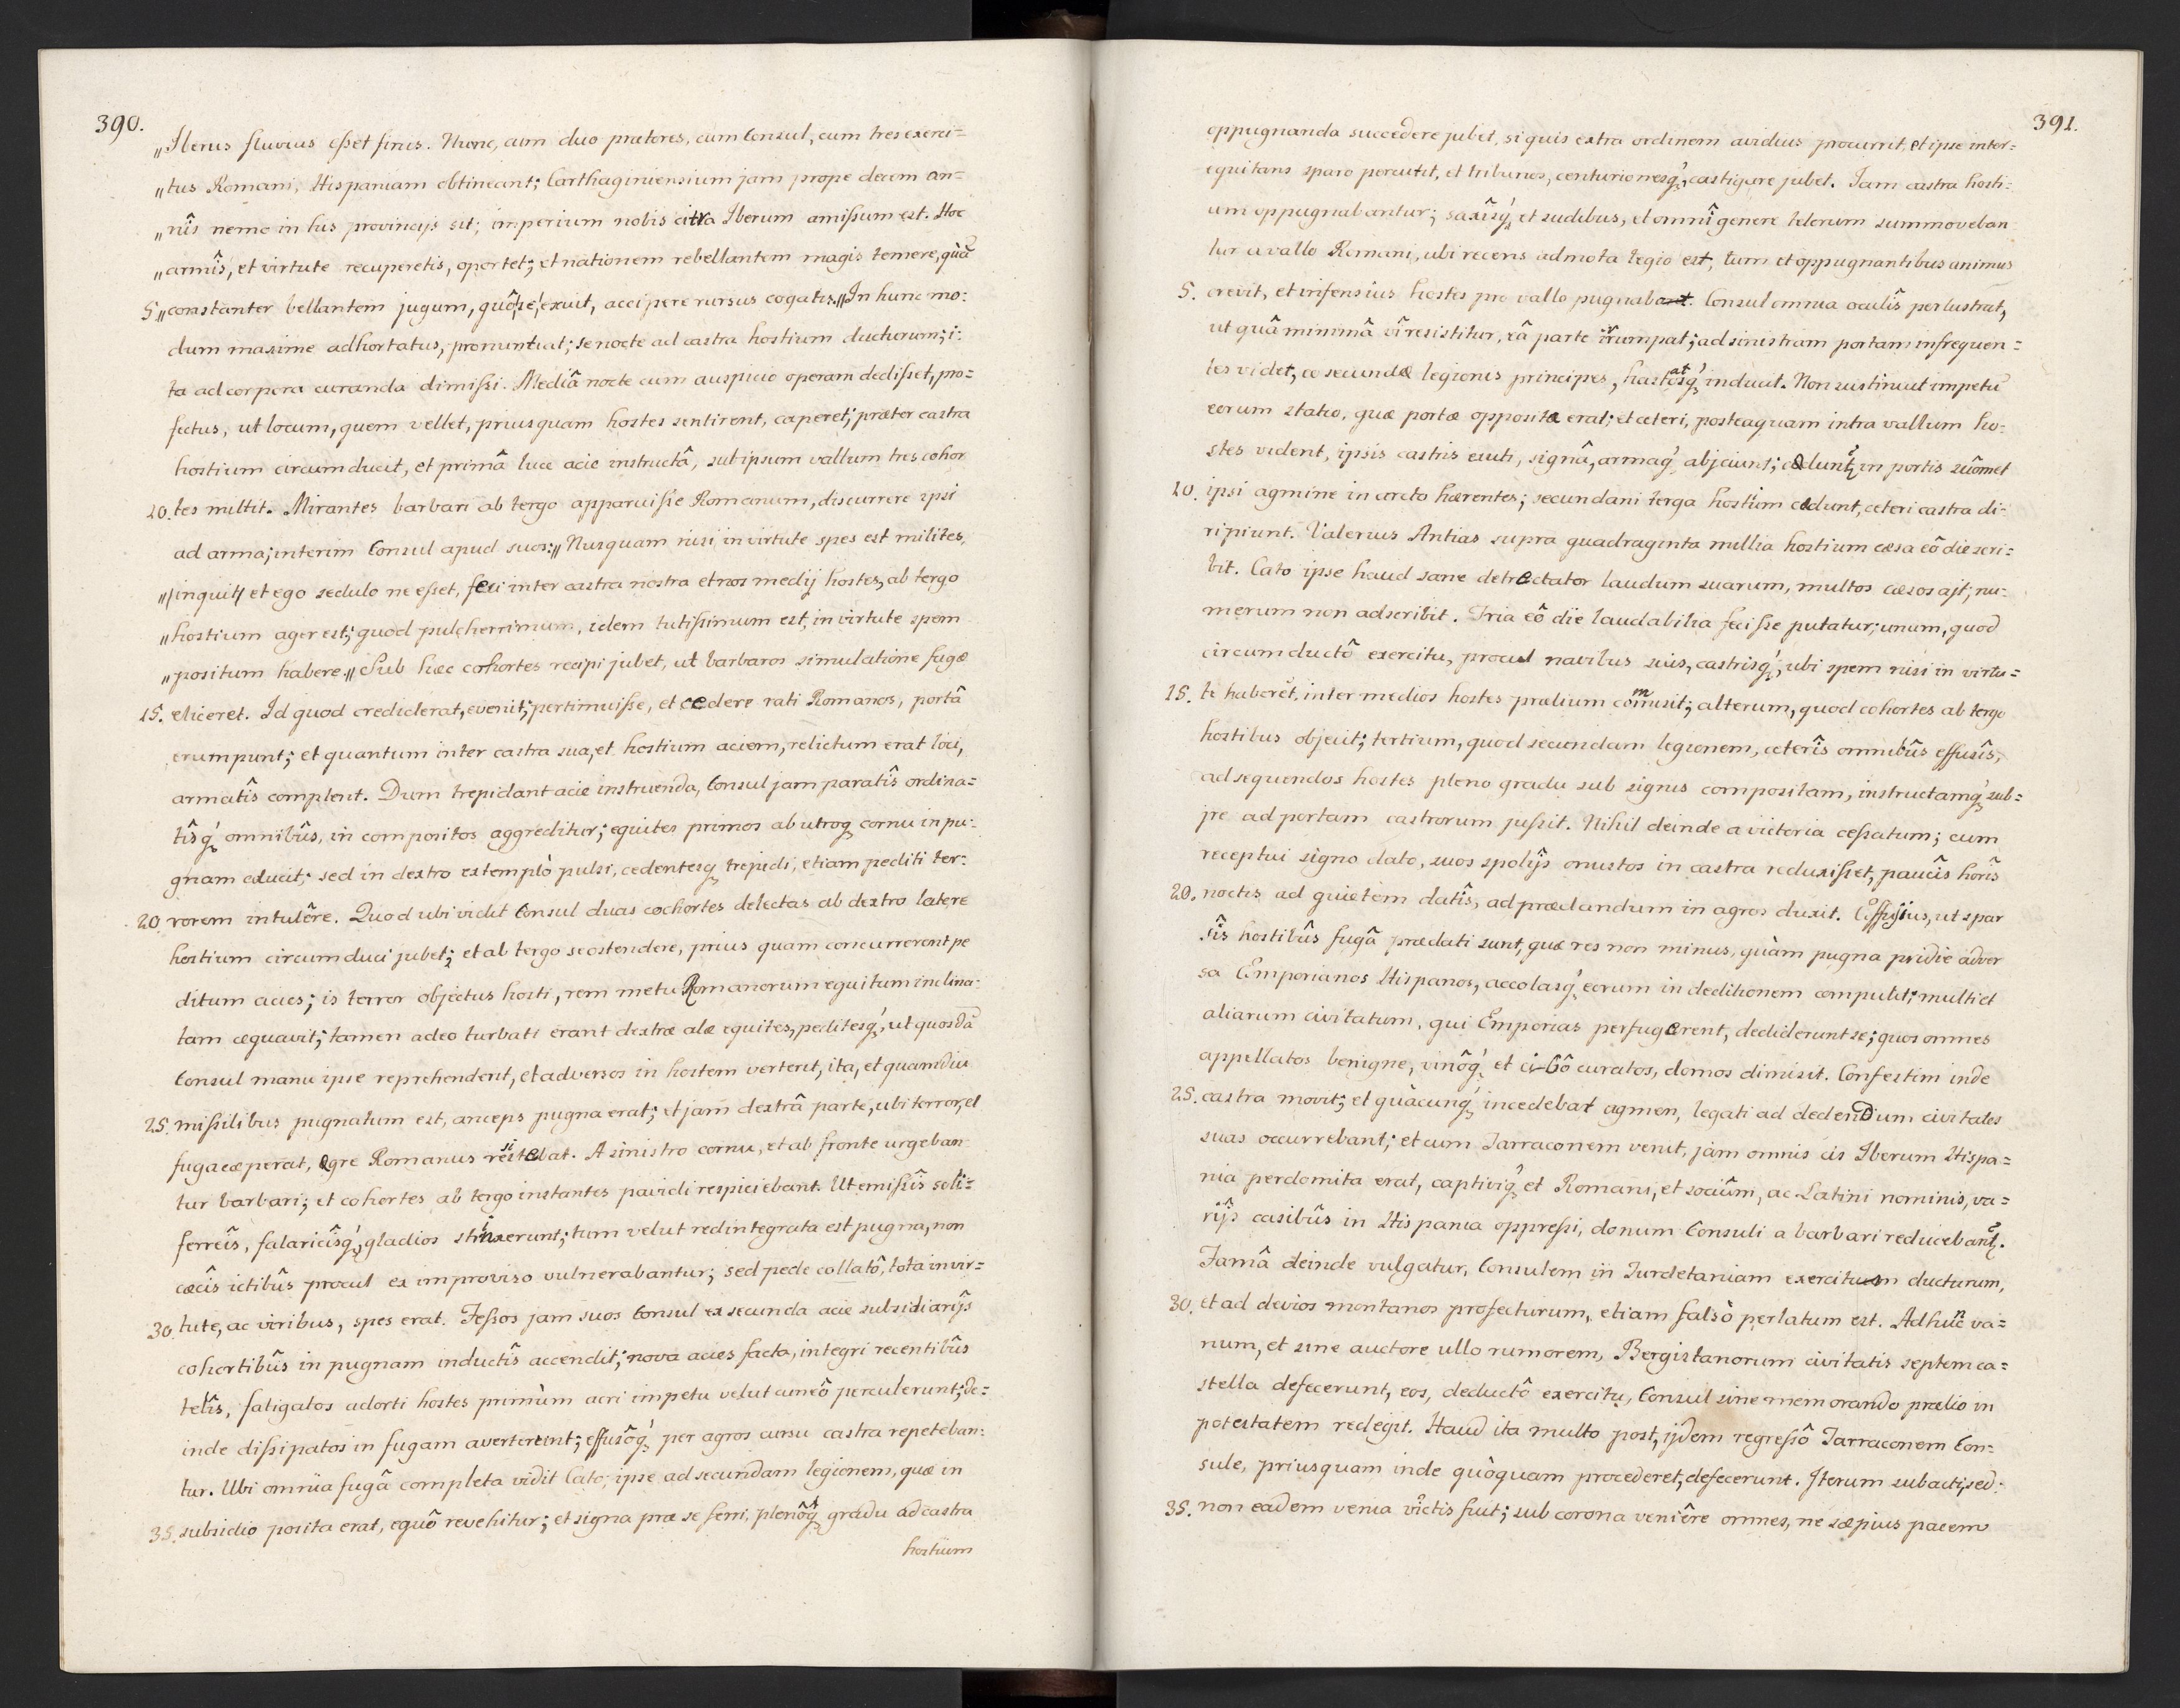 390.
„Iberus fluvius esset finis. Nunc, cum duo prætores, cum Consul, cum tres exerci=
„tus Romani, Hispaniam obtineant; Carthaginiensium jam prope decem an=
„nîs nemo in his provincijs sit; imperium nobis citra Iberum amissum est. Hoc
„armîs, et virtute recuperetis, oportet; et nationem rebellantem magis temere, quã
5 „constanter bellantem jugum, quô se exuit, accipere rursus cogatis.„ In hunc mo=
dum maxime adhortatus, pronuntiat; se nocte ad castra hostium ducturum; i=
ta ad corpora curanda dimissi. Mediâ nocte cum auspicio operam dedisset, pro=
fectus, ut locum, quem vellet, priusquam hostes sentirent, caperet; præter castra
hostium circumducit, et primâ luce acie instructâ, sub ipsum vallum tres cohor
10. tes mittit. Mirantes barbari ab tergo apparuisse Romanum, discurrere ipsi
ad arma; interim Consul apud suos: „Nusquam nisi in virtute spes est milites,
„/inquit/ et ego sedulo ne esset, feci inter castra nostra et nos medij hostes, ab tergo
„hostium ager est; quod pulcherrimum, idem tutissimum est, in virtute spem
„positum habere.„ Sub hæc cohortes recipi jubet, ut barbaros simulatione fugæ
15. eliceret. Id quod crediderat, evenit; pertimuisse, et cedere rati Romanos, portâ
erumpunt; et quantum inter castra sua, et hostium aciem, relictum erat loci,
armatîs complent. Dum trepidant acie instruenda, Consul jam paratîs ordina=
tîsq́ omnibûs, in compositos aggreditur; equites primos ab utroq cornu in pu=
gnam educit; sed in dextro extemplò pulsi, cedentesq trepidi, etiam pediti ter=
20 rorem intulêre. Quod ubi vidit Consul duas cohortes delectas ab dextro latere
hostium circumduci jubet; et ab tergo se ostendere, prius quam concurrerent pe
ditum acies; is terror objectus hosti, rem metu Romanorum equitum inclina=
tam æquavit; tamen adeo turbati erant dextræ alæ equites, peditesq́, ut quosdã
Consul manu ipse reprehenderit, et adversos in hostem verterit, ita, et quamdiu
25. missilibus pugnatum est, anceps pugna erat; et jam dextrâ parte, ubi terror, et
fuga cæperat, ægre Romanus restabat. A sinistro cornu, et ab fronte urgeban
tur barbari; et cohortes ab tergo instantes pavidi respiciebant. Ut emissîs soli=
ferreîs, falaricîsq́, gladios strinxerunt; tum velut redintegrata est pugna, non
cæcîs ictibûs procul ex improviso vulnerabantur; sed pede collatô, tota in vir=
30 tute, ac viribus, spes erat. Fessos jam suos Consul ex secunda acie subsidiarijs
cohortibûs in pugnam inductîs accendit; nova acies facta, integri recentibûs
telîs, fatigatos adorti hostes primùm acri impetu velut cuneô perculerunt; de=
inde dissipatos in fugam averterunt; effusôq́ per agros cursu castra repeteban=
tur. Ubi omnia fugâ completa vidit Cato; ipse ad secundam legionem, quæ in
35. subsidio posita erat, equô revehitur; et signa præ se ferri, plenôq́ gradu ad castra
hostium
391.
oppugnanda succedere jubet, si quis extra ordinem avidius procurrit, et ipse inter=
equitans sparo percutit, et tribunos, centurionesq́, castigare jubet. Iam castra hosti=
um oppugnabantur; saxîsq́, et sudibus, et omnî genere telorum summoveban
tur a vallo Romani, ubi recens admota legio est, tum et oppugnantibus animus
5. crevit, et infensius hostes pro vallo pugnabant. Consul omnia oculîs perlustrat,
ut quâ minimâ vî resistitur, eâ parte irrumpat; ad sinistram portam infrequen=
tes videt, eo secundæ legionis principes, hastatosq́ inducit. Non sustinuit impetũ
eorum statio, quæ portæ opposita erat; et ceteri, posteaquam intra vallum ho=
stes vident, ipsis castris exuti, signâ, armaq́ abjiciunt; cæduntr in portis suômet
10. ipsi agmine in arcto hærentes; secundani terga hostium cædunt, ceteri castra di=
ripiunt. Valerius Antias supra quadraginta millia hostium cæsa eô die scri=
bit. Cato ipse haud sane detrectator laudum suarum, multos cæsos ajt; nu=
merum non adscribit. Tria eô die laudabilia fecisse putatur; unum, quod
circumductô exercitu, procul navibus suis, castrisq́, ubi spem nisi in virtu=
15. te haberet, inter medios hostes prælium commisit; alterum, quod cohortes ab tergo
hostibus objecit; tertium, quod secundam legionem, ceterîs omnibûs effusîs,
ad sequendos hostes pleno gradu sub signis compositam, instructamq́ sub=
jre ad portam castrorum jussit. Nihil deinde a victoria cessatum; cum
receptui signo dato, suos spolijs onustos in castra reduxisset, paucîs horîs
20. noctis ad quietem datîs, ad prædandum in agros duxit. Effusius, ut spar
sîs hostibûs fugâ prædati sunt, quæ res non minus, quàm pugna pridie adver
sa Emporianos Hispanos, accolasq́ eorum in deditionem compulit; multi et
aliarum civitatum, qui Emporias perfugerent, dediderunt se; quos omnes
appellatos benigne, vinôq́ et cibô curatos, domos dimisit. Confestim inde
25. castra movit; et quàcunq́ incedebat agmen, legati ad dedendum civitates
suas occurrebant; et cum Tarraconem venit, jam omnis cis Iberum Hispa=
nia perdomita erat, captiviq́ et Romani, et sociûm, ac Latini nominis, va=
rijs casibûs in Hispania oppressi, donum Consuli a barbari reducebantr.
Famâ deinde vulgatur, Consulem in Turdetaniam exercitum ducturum,
30. et ad devios montanos profecturum, etiam falsò perlatum est. Ad hunc va=
num, et sine auctore ullo rumorem, Bergistanorum civitatis septem ca=
stella defecerunt, eos, deductô exercitu, Consul sine memorando prælio in
potestatem redegit. Haud ita multo post, ijdem regressô Tarraconem Con=
sule, priusquam inde quòquam procederet, defecerunt. Iterum subacti, sed
35. non eadem venia victis fuit; sub corona veniêre omnes, ne sæpius pacem